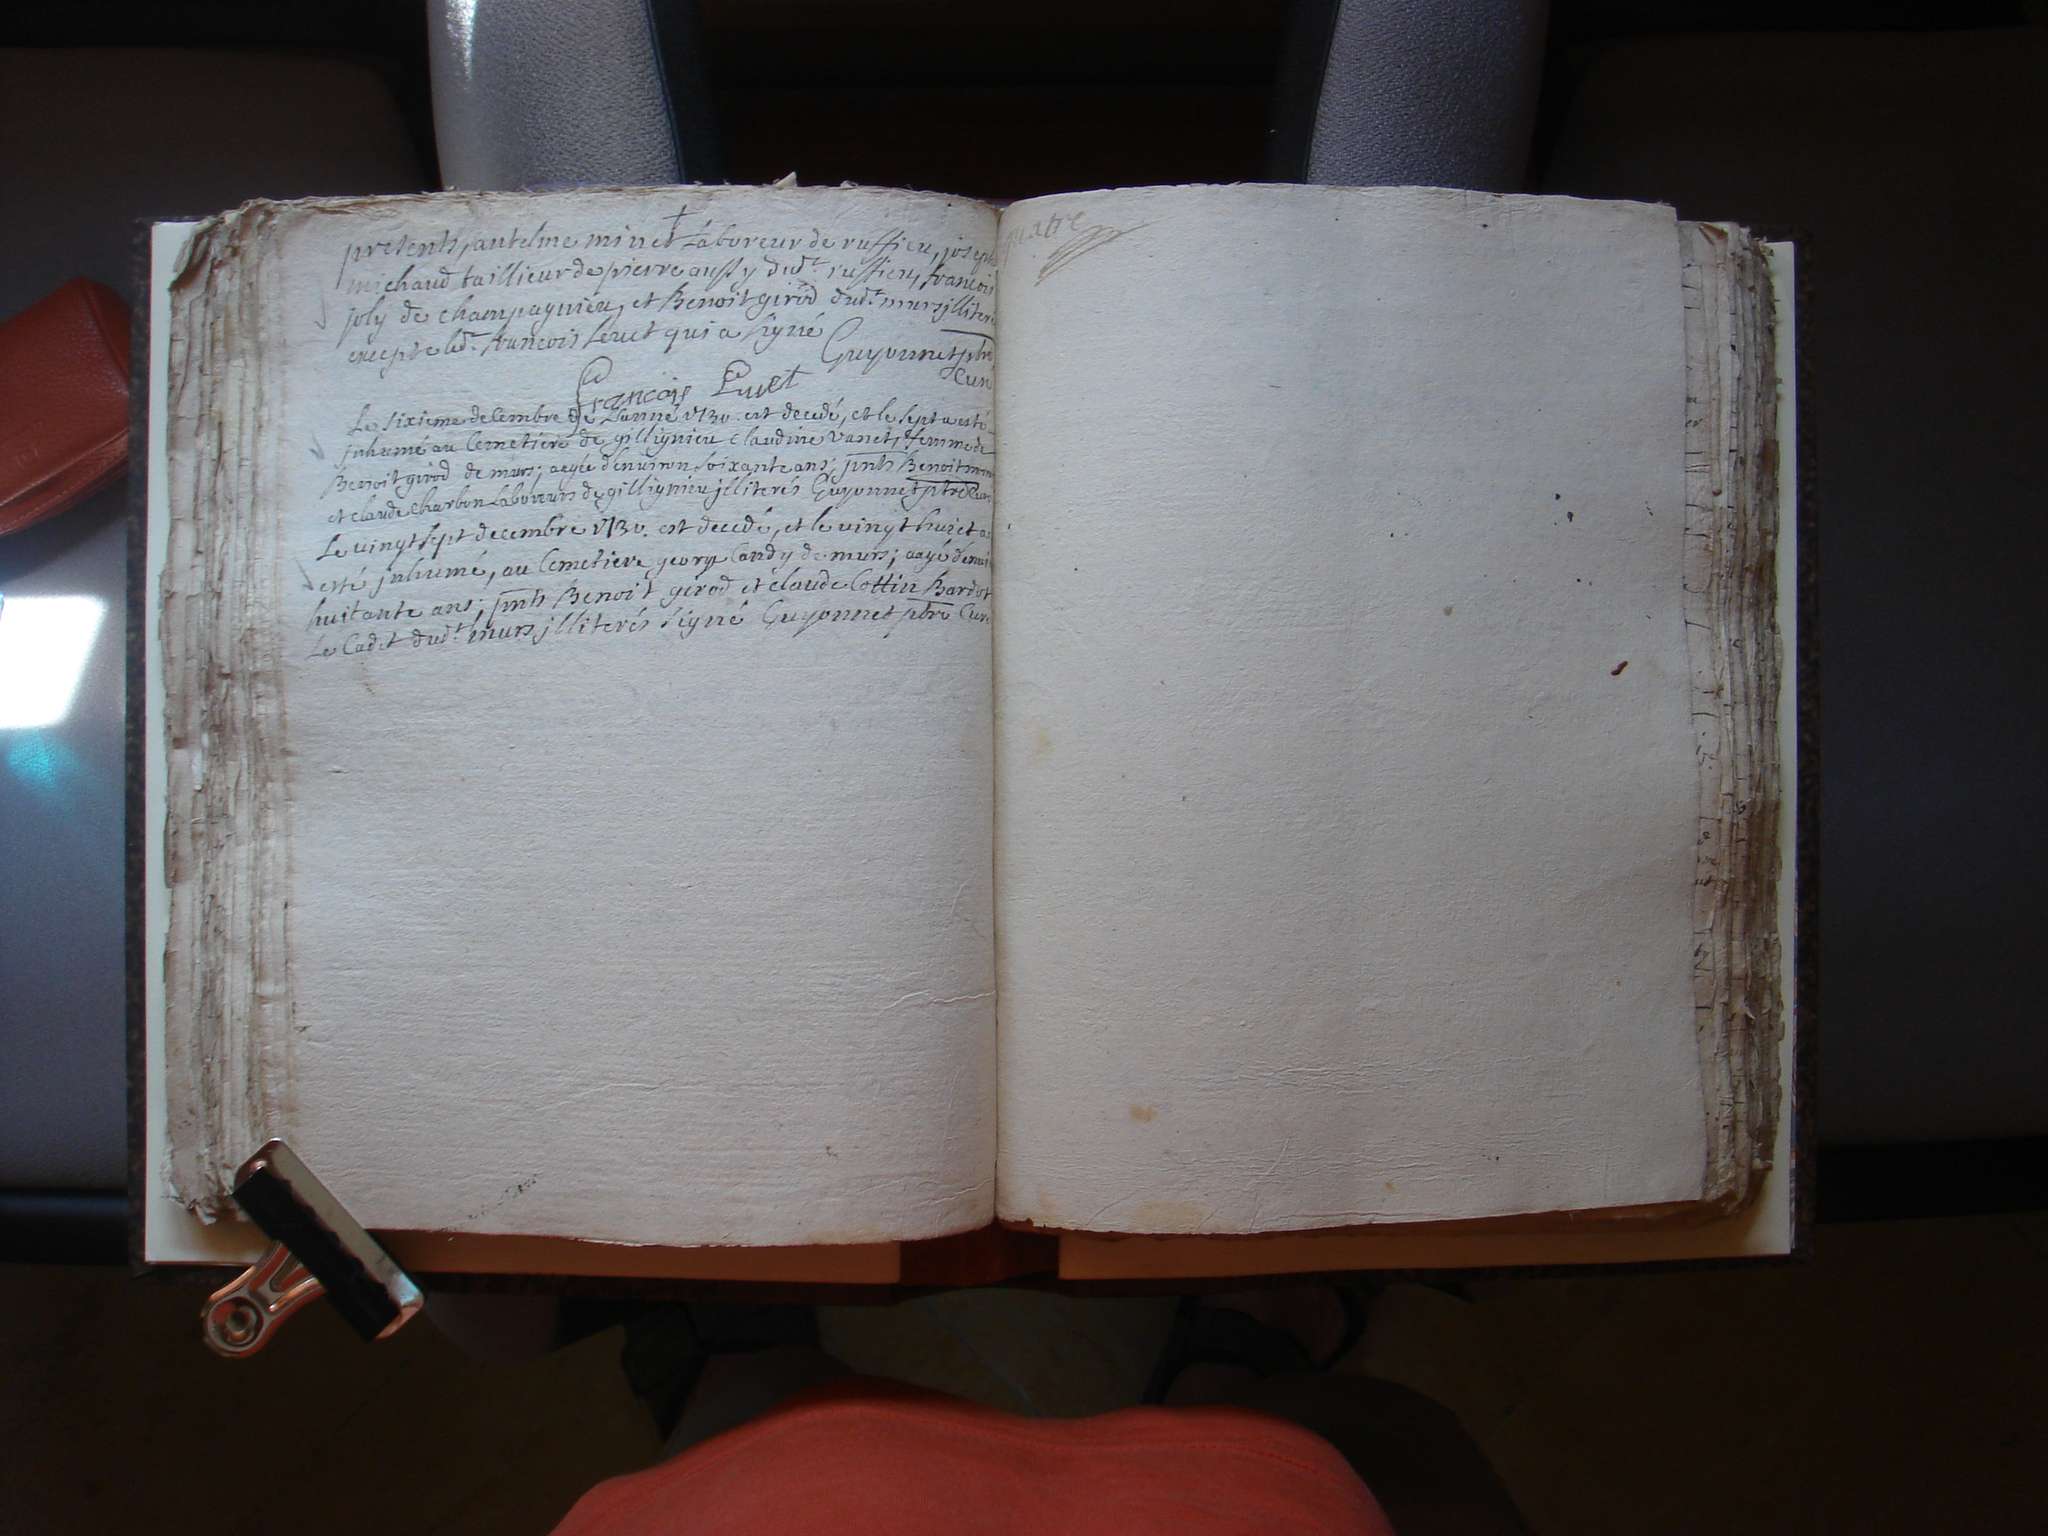 presents, antelme minet Laboreur de ruffieu, joseph
michaud taillieur de pierre aussy dud.t ruffieu, francois
joly de champagnieu, et Benoit girod dud.t murs jlliterés
excepte led.t francois Leuet qui a signé Guyonnet ptre
Curé
francois
Le sixieme decembre de Lanné 1730. est decedé, et le sept a esté
jnhumé au Cemetiere de gillignieu Claudine vanet, femme de
Benoit girod de murs; aagée d'environ soixante ans; pnts Benoit
et claude Charbon Laboreurs de gillignieu jlliterés Guyonnet ptre Curé
Le vingt sept decembre 1730. est decedé, et le vingt huict a
esté jnhumé, au Cemetiere george Candy de murs; aagé d'envi
huitante ans; pnts Benoit girod et claude Cottin Bardot
Le Cadet dud.t murs jlliterés signé Guyonnet ptre Curé
quatre